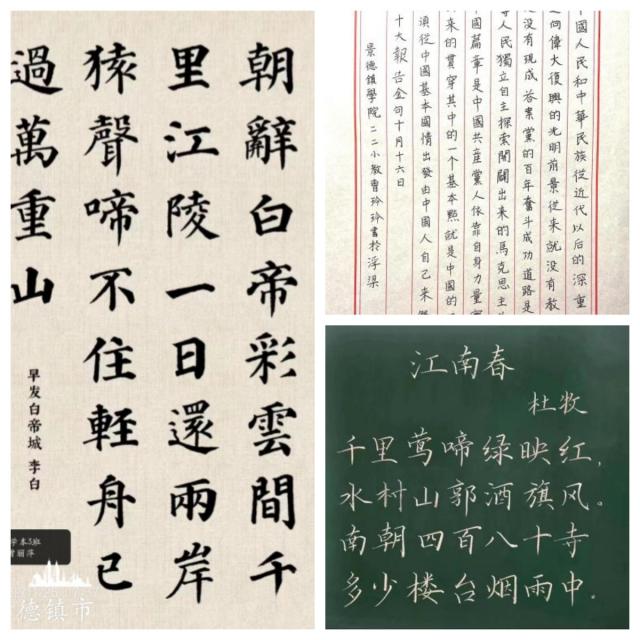 朝辭白帝彩雲間千
里江陵一日還兩岸
猿聲啼不住輕舟已
過萬重山
早发白帝城 李白
学本5班
曾丽萍
德镇市
國人民和中華民族從近代以后的深重
之向偉大復興的光明前景從来就没有教
没有現成答案黨的百年奮斗成功道路是
人民獨立自主探索開闢出来的馬克思主
國篇章是中國共産黨人依靠自身力量實
来的貫穿其中的一个基本點就是中國的
須從中國基本國情出發由中國人自己来
十大報告金句十月十六日
景德镇學院二二小教曹玲玲書於浮梁
江南春
杜牧
千里莺啼绿映红，
水村山郭酒旗风。
南朝四百八十寺
多少楼台烟雨中。